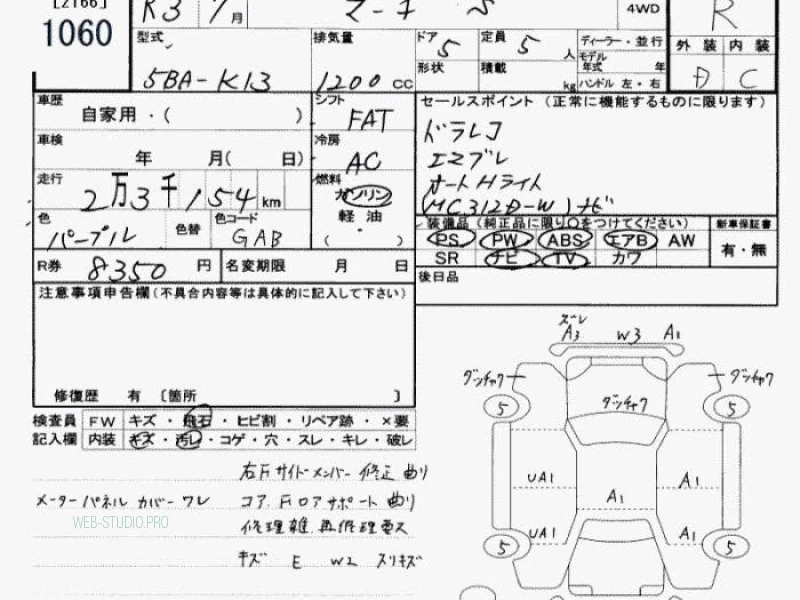 [2166]
1060
R3 7月 マーチ S 4WD R
型式 排気量 ドア 5 定員 5 人 ディーラー・並行 外装 内装
モデル年式 年
5BA-K13 1200 cc 形状 積載 kg ハンドル 左・右 D C
車歴 シフト セールスポイント (正常に機能するものに限ります)
自家用・( ) FAT
ドラレコ
車検 冷房
エマブレ
年 月( 日) AC
オートHライト
走行 2万3千154km 燃料 ガソリン
(MC312D-W)ナビ
軽油
色 パープル 色替 色コード GAB ( ・ )
装備品 (純正品に限り○をつけてください) 新車保証書
PS PW ABS エアB AW 有・無
SR ナビ TV カワ
R券 8350 円 名変期限 月 日
後日品
注意事項申告欄(不具合内容等は具体的に記入して下さい)
修復歴 有 [箇所 ]
検査員 FW キズ・飛石・ヒビ割・リペア跡・×要
記入欄 内装 キズ・汚レ・コゲ・穴・スレ・キレ・破レ
右Fサイドメンバー 修正 曲り
メーターパネルカバーワレ コア、Fロアサポート 曲り
WEB-STUDIO.PRO
修理雑、再修理要ス
キズ E W2 スリキズ
ズレ
A3 W3 A1
ダンチャク ダンチャク
5 ダンチャク 5
UA1 A1
A1
UA1 A1
5 5